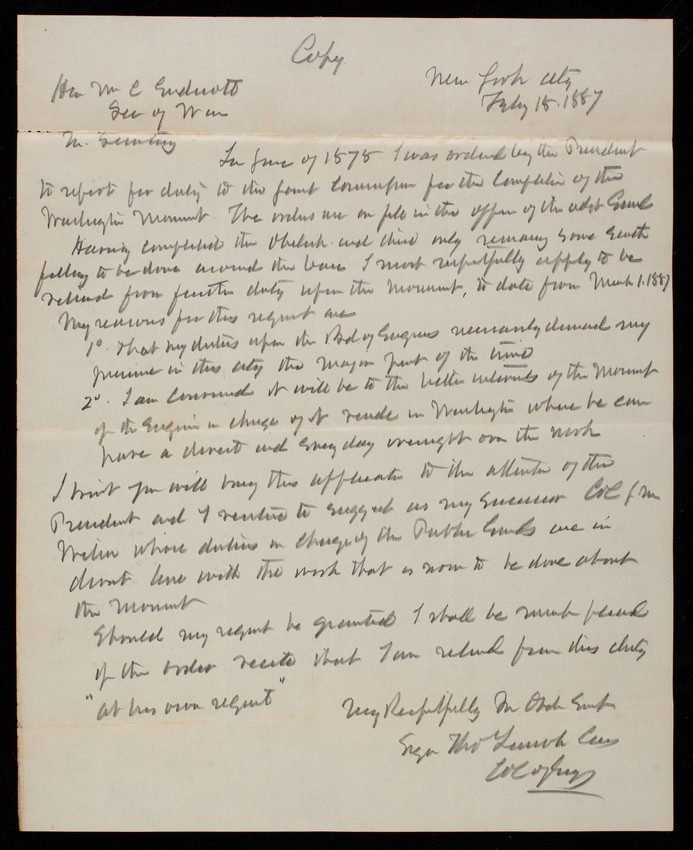 Copy
New York City
Feby 18. 1887
Hon Wm C Endicott
Sec of War
Mr. Secretary
In June of 1878 I was ordered by the President
to report for duty to the Joint Commission for the Completion of the
Washington Monument. The orders are on file in the office of the Adjt Genl
Having completed the Obelisk and there only remaing some Earth
filling to be done around the base I most respectfully apply to be
relieved from further duty upon the Monument, to date from March 1. 1887
My reasons for this request are
1o. that my duties upon the Bd of Engrs necessarily demand my
presence in this city the major part of the time
2o. I am convinced it will be to the better interests of the Monument
if the Engineer in charge of it reside in Washington where he can
have a direct and every day oversight over the work
I trust you will bring this application to the attention of the
President and I venture to suggest as my successor Col Jno
Wilson whose duties in charge of the Public Grounds are in
direct line with the work that is now to be done about
the Monument
Should my request be granted I shall be much pleased
if the order recite that I am relieved from this duty
"at his own request"
Very Respectfully Yr Obdt Servt
Sgn Thos Lincoln Casey
Col of Engrs